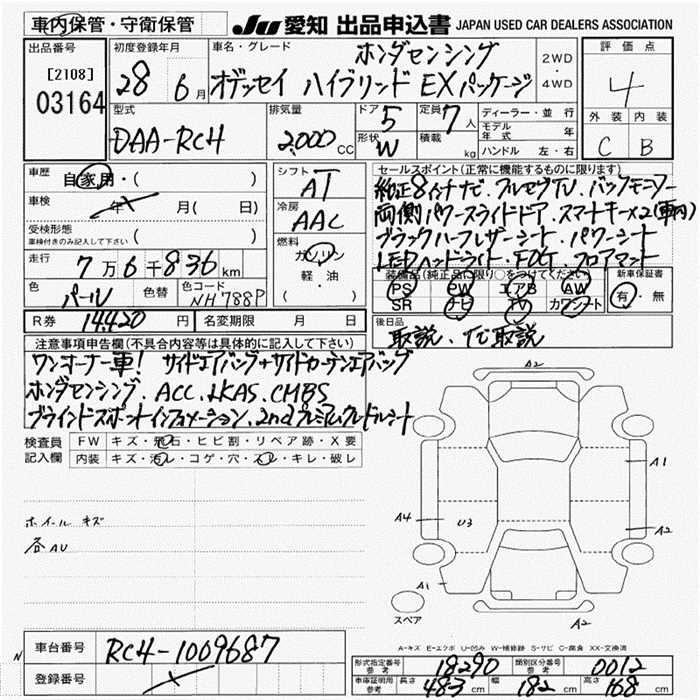 車内保管・守衛保管
JU 愛知 出品申込書 JAPAN USED CAR DEALERS ASSOCIATION
出品番号
[2108]
03164
初度登録年月
28 6月
車名・グレード
ホンダセンシング
オデッセイ ハイブリッド EXパッケージ
2WD
・
4WD
評価点
4
外装 内装
C B
型式
DAA-RC4
排気量
2,000 CC
ドア 5
形状 W
定員 7人
積載 kg
ディーラー・並行
モデル年式 年
ハンドル 左・右
車歴
自家用・( )
車検
年 月( 日)
受検形態
車検付きのみ記入して下さい ( )
走行
7万6千836km
色 パール 色替 色コードNo. NH788P
R券 14,420円 名変期限 月 日
シフト
AT
冷房
AAC
燃料
ガソリン
軽・油
( )
セールスポイント(正常に機能するものに限ります)
純正8インチナビ、フルセグTV、バックモニター
両側パワースライドドア、スマートキー×2(車内)
ブラックハーフレザーシート、パワーシート
LEDヘッドライト・FOG、フロアマット
装備品(純正品に限り○をつけてください)
PS PW エアB AW
SR ナビ TV カワシート
新車保証書
有・無
後日品
取説、ナビ取説
注意事項申告欄(不具合内容等は具体的に記入して下さい)
ワンオーナー車! サイドエアバッグ+サイドカーテンエアバッグ
ホンダセンシング、ACC、LKAS、CMBS
ブラインドスポットインフォメーション、2ndプレミアムクレードルシート
検査員記入欄
FW キズ・飛石・ヒビ割・リペア跡・X要
内装 キズ・汚レ・コゲ・穴・スレ・キレ・破レ
ホイールキズ
各AU
A2
A1
A4 U3 A2
A1
スペア
A2
A-キズ E-エクボ U-凹み W-補修跡 S-サビ C-腐食 XX-交換済
N
車台番号 RC4-1009687
登録番号
形式指定番号参考 18290 類別区分番号参考 0012
車庫証明用参考 長さ 483cm 幅 182cm 高さ 168cm